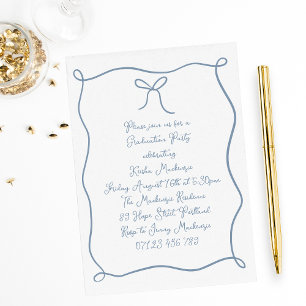 Please join us for a
Graduation Party
celebrating
Keisha Mackenzie
Friday August 16th at 5.30pm
The Mackenzie Residence
89 Hope Street, Portland
Rsvp to Jenny Mackenzie
07123 456 789